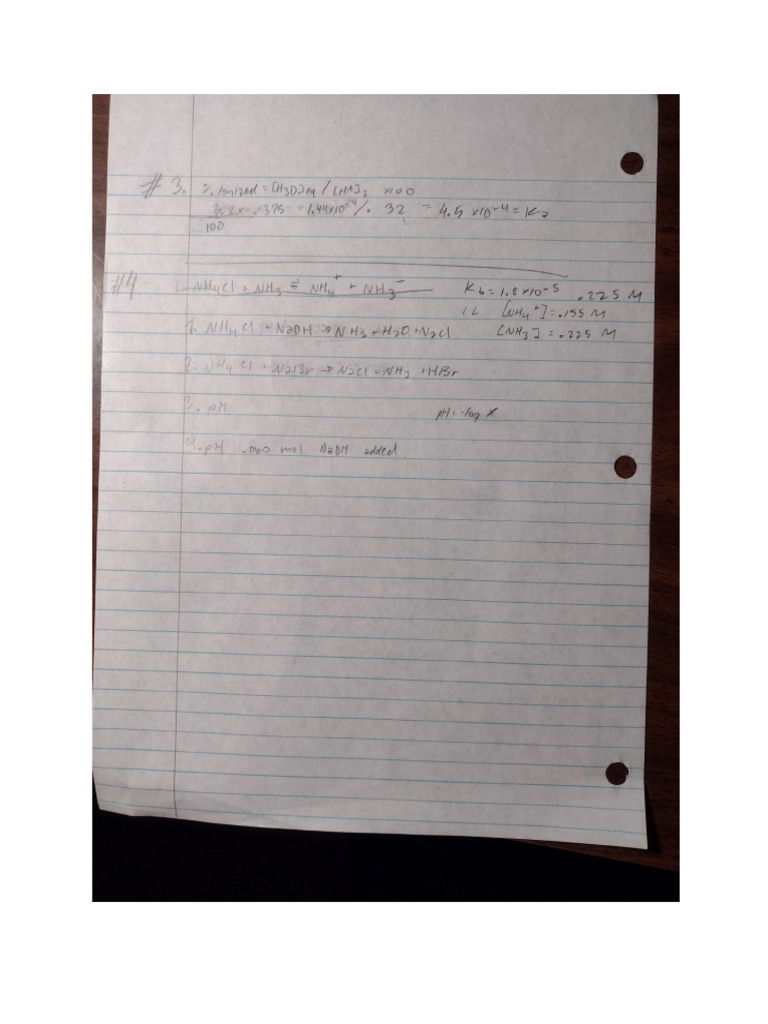 # 3. % Ionized = [H3O]eq / [HA]i x100
3.2 x .375 = 1.44x10^-4 / . 32 = 4.5 x10^-4 = Ka
100
#4 1. NH4Cl + NH3 ⇌ NH4^+ + NH3^- Kb = 1.8x10^-5 .225 M
1L [NH4^+] = .155 M
1. NH4Cl + NaOH → NH3 + H2O + NaCl [NH3] = .225 M
2. NH4Cl + NaBr → NaCl + NH3 + HBr
3. pH pH = -log x
4. pH .060 mol NaOH added